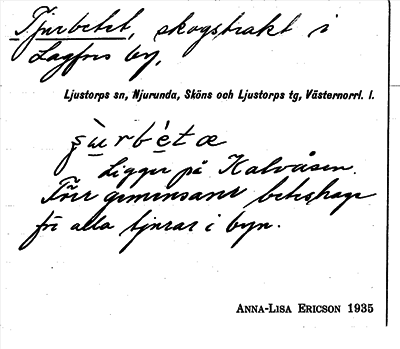 Tjurbetet, skogstrakt i
Lagfors by.
Ljustorps sn, Njurunda, Sköns och Ljustorps tg, Västernorrl. l.
ʂù̱rbé̱tæ
Ligger på Kalvåsen.
Förr gemensam beteshage
för alla tjurar i byn.
ANNA-LISA ERICSON 1935